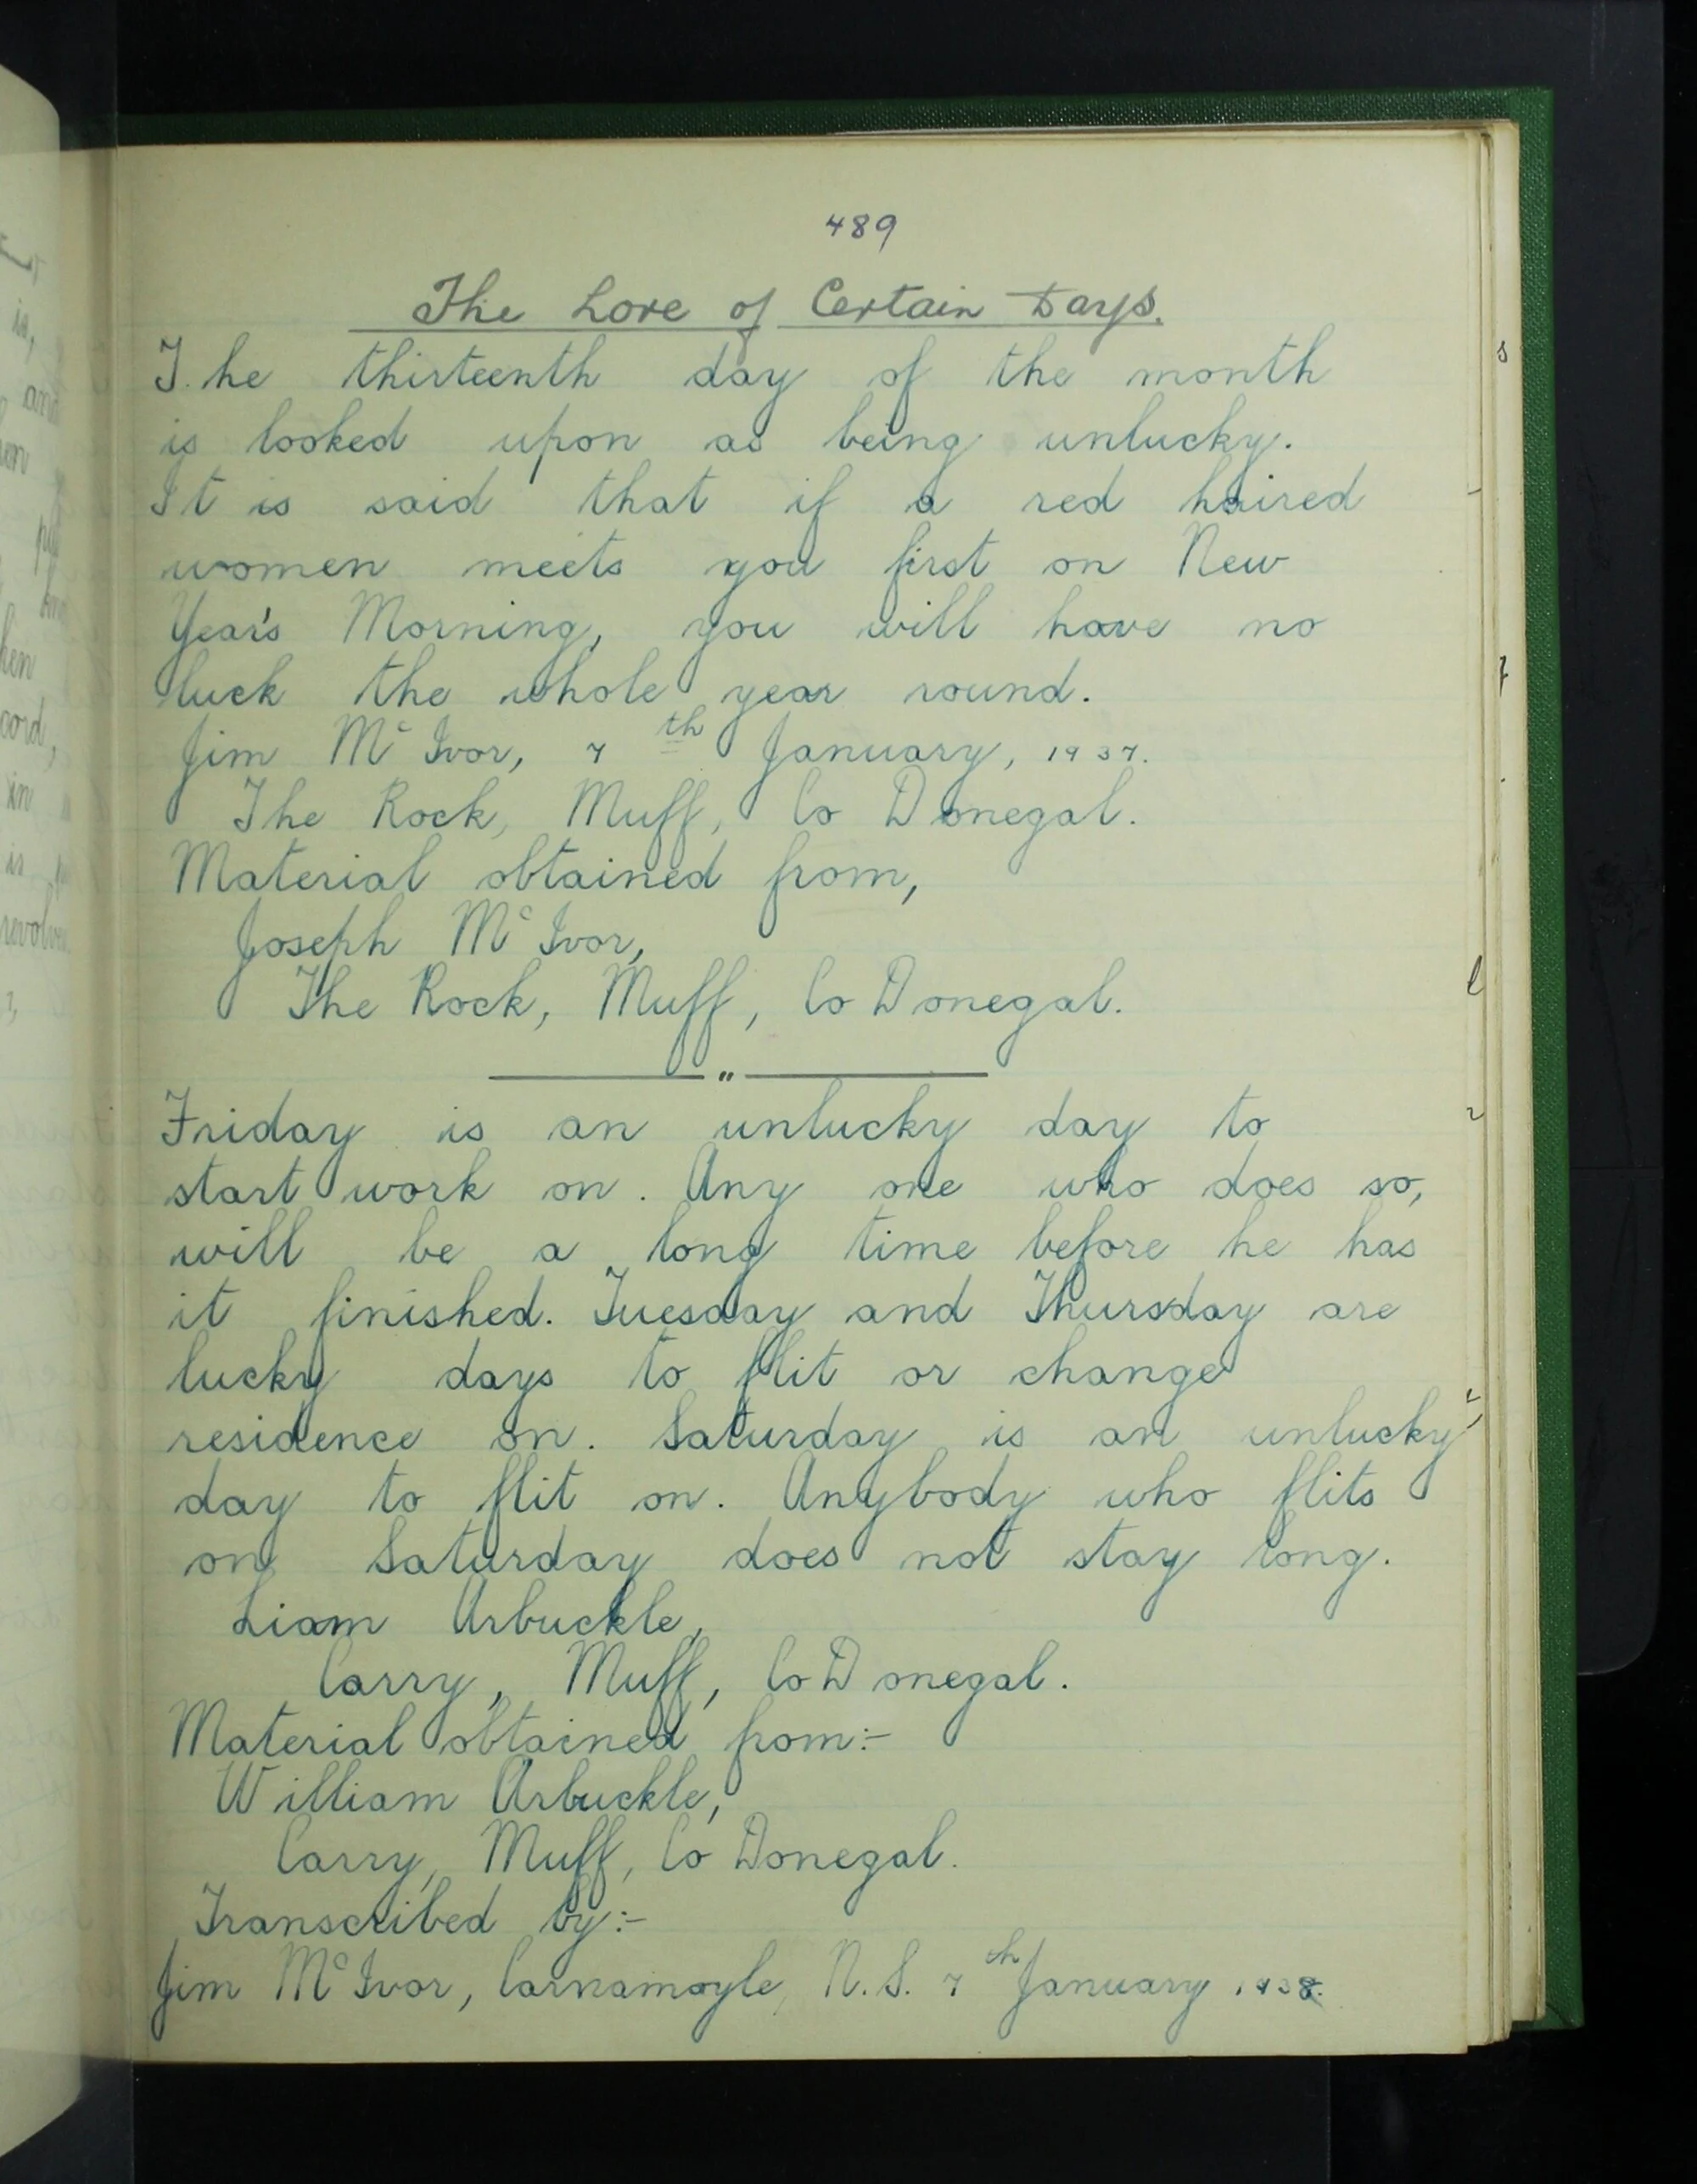 489
The Lore of Certain Days.
The thirteenth day of the month
is looked upon as being unlucky.
It is said that if a red haired
women meets you first on New
Year's Morning, you will have no
luck the whole year round.
Jim Mc Ivor, 7th January, 1937.
The Rock, Muff, Co Donegal.
Material obtained from,
Joseph Mc Ivor,
The Rock, Muff, Co Donegal.
"
Friday is an unlucky day to
start work on. Any one who does so,
will be a long time before he has
it finished. Tuesday and Thursday are
lucky days to flit or change
residence on. Saturday is an unlucky
day to flit on. Anybody who flits
on Saturday does not stay long.
Liam Arbuckle,
Carry, Muff, Co Donegal.
Material obtained from:-
William Arbuckle,
Carry, Muff, Co Donegal.
Transcribed by:-
Jim Mc Ivor, Carnamoyle, N.S. 7th January 1938.